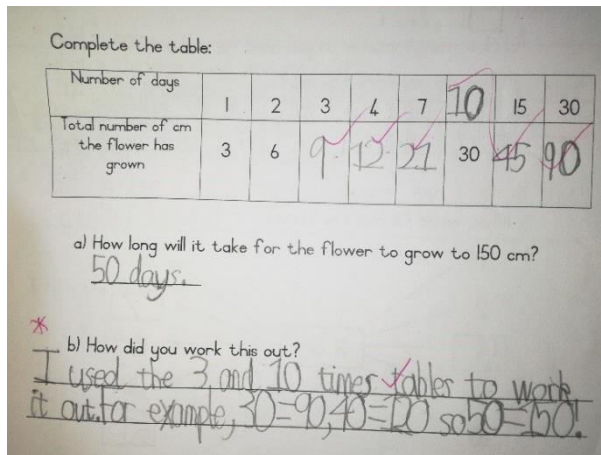 Complete the table:
Number of days 1 2 3 4 7 10 15 30
Total number of cm
the flower has
grown 3 6 9 12 21 30 45 90
a) How long will it take for the flower to grow to 150 cm?
50 days.
b) How did you work this out?
I used the 3 and 10 times tables to work
it out. for example, 30=90, 40=120 so 50=150!